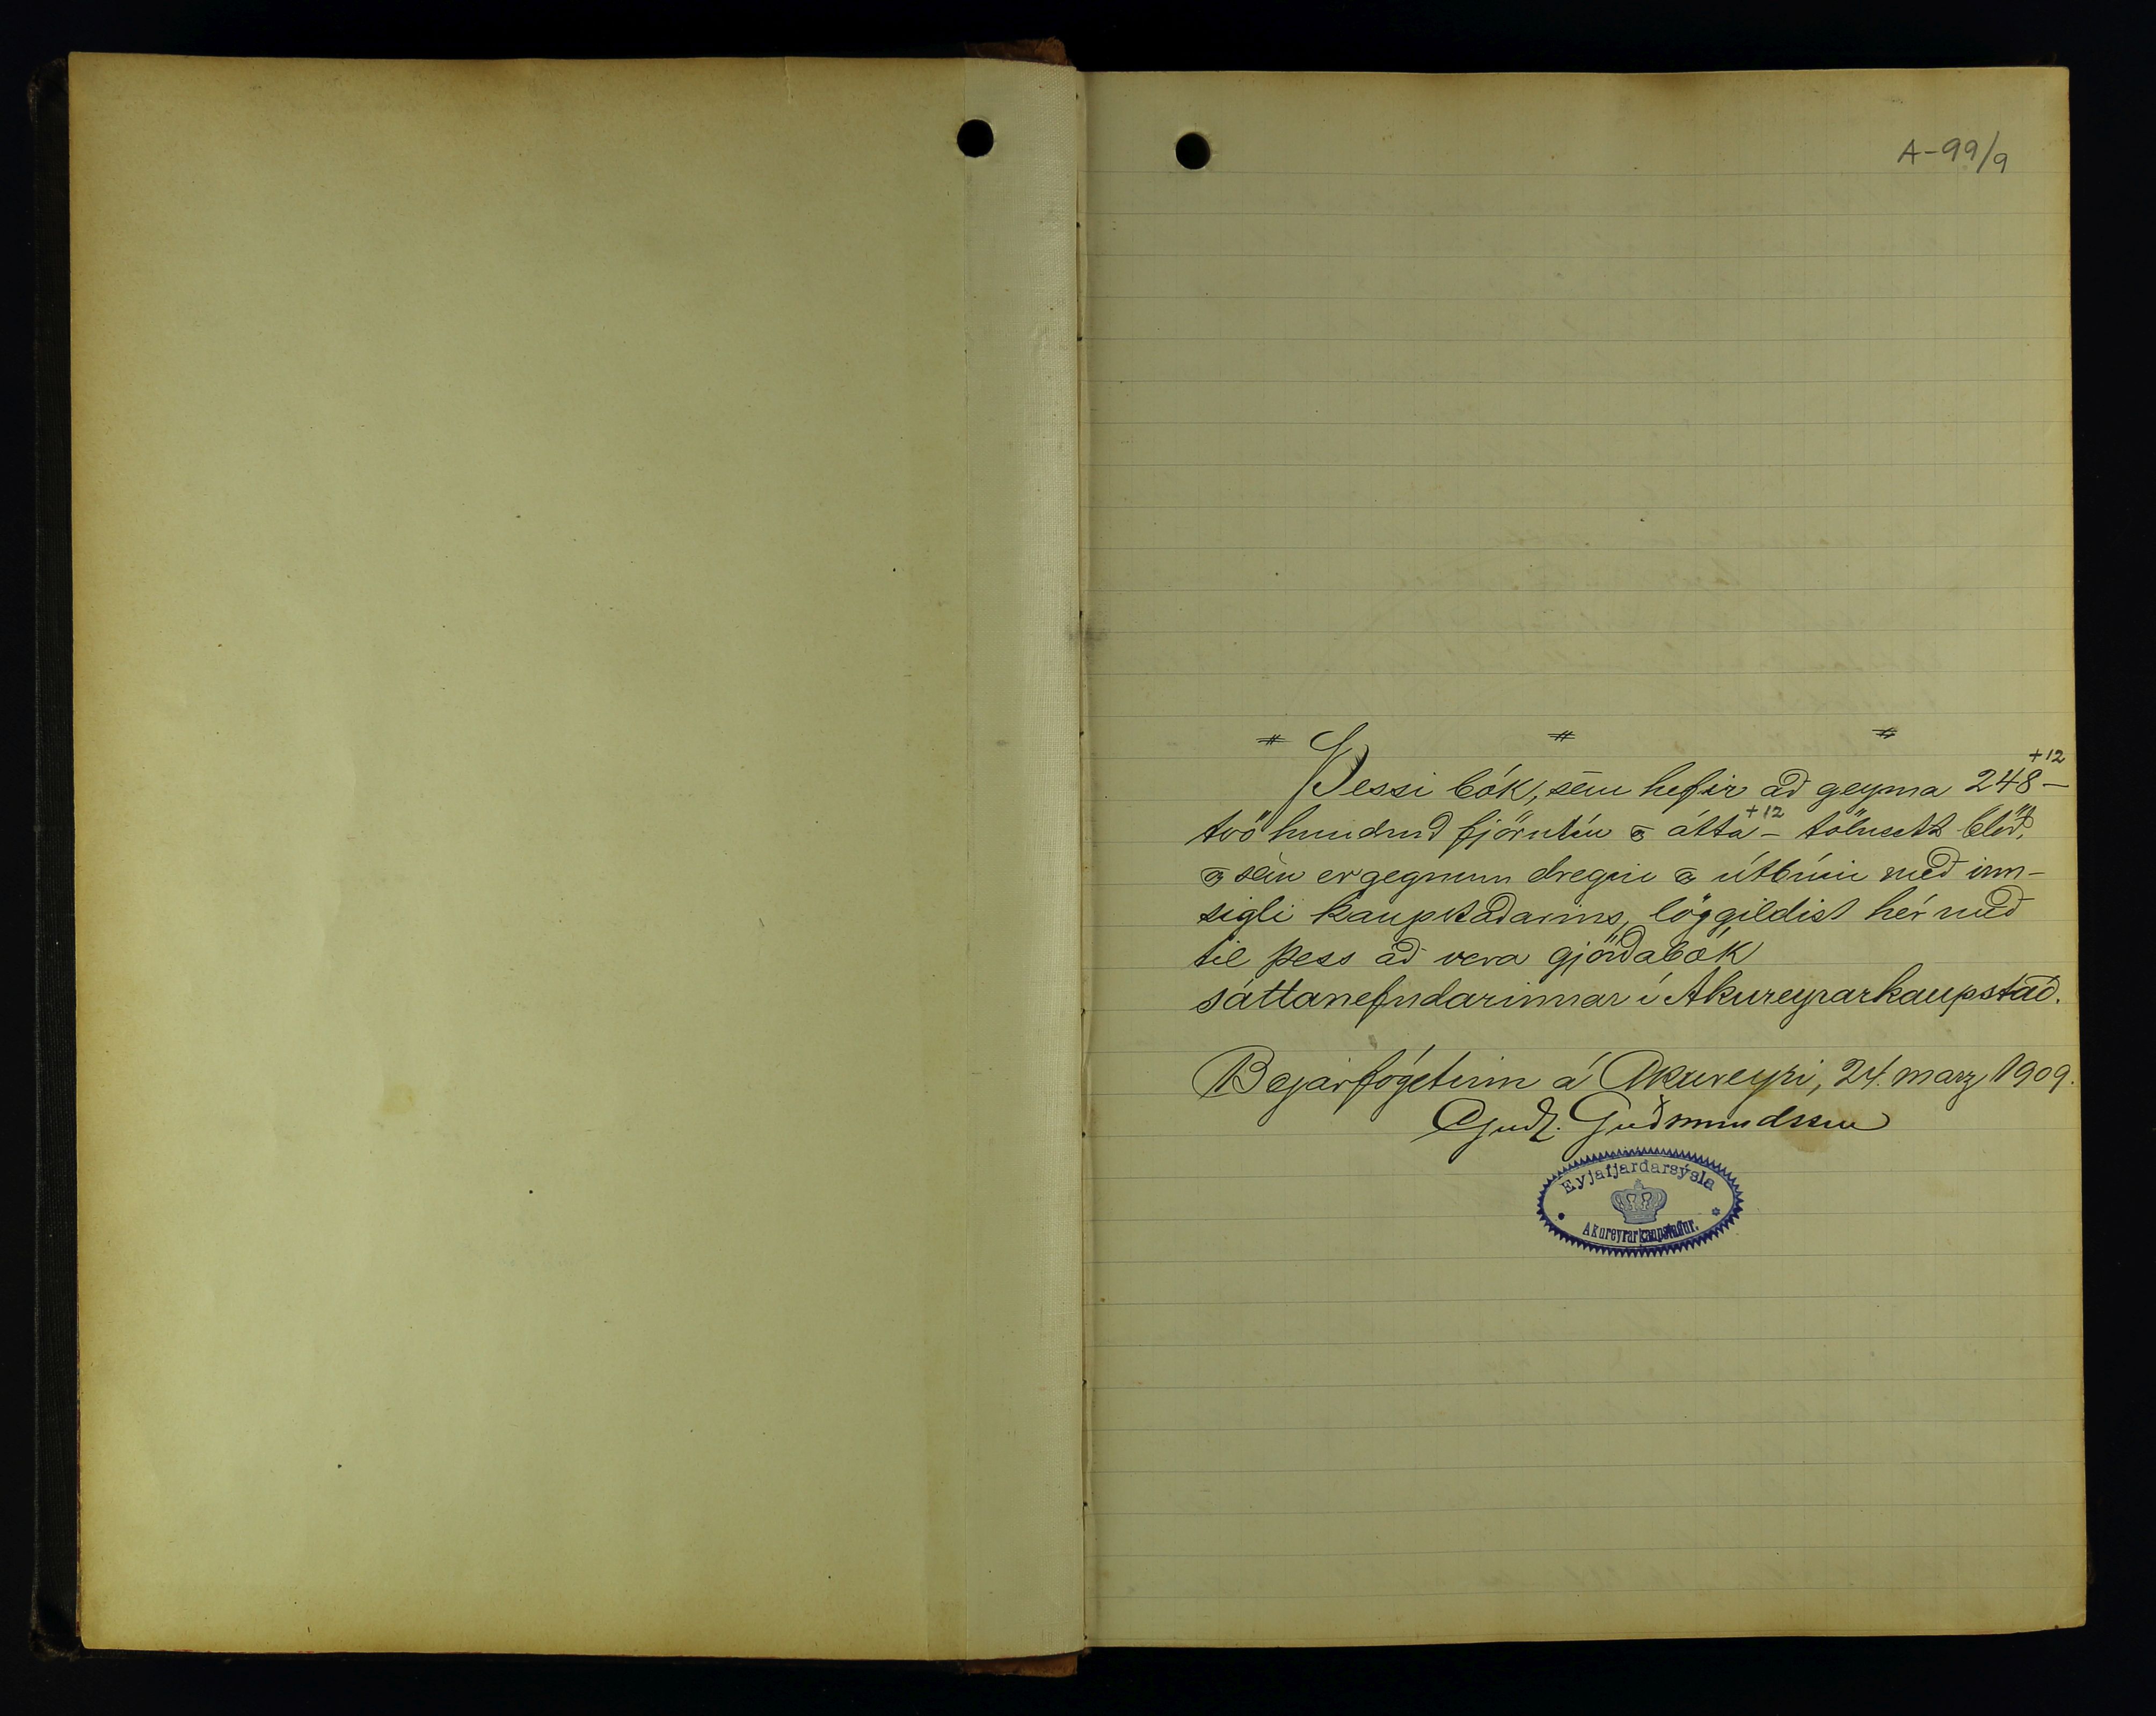 A-99/9
# # #
+12
Þessi bók, sem hefir að geyma 248 –
+12
tvö hundruð fjörutíu og átta – tölusett blöð,
og sem er gegnum dregin og útbúin með inn-
sigli kaupstaðarins, löggildist hér með
til þess að vera gjörðabók
sáttanefndarinnar í Akureyrarkaupstað.
Bæjarfógetinn á Akureyri, 24. marz 1909.
Guðl. Guðmundsson
Eyjafjarðarsýsla
Akureyrarkaupstaður.